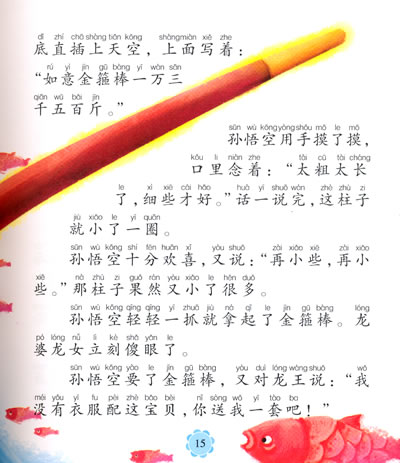 dǐ zhí chā shàng tiān kōng shàng miàn xiě zhe
底直插上天空，上面写着：
rú yì jīn gū bàng yí wàn sān
“如意金箍棒一万三
qiān wǔ bǎi jīn
千五百斤。”
sūn wù kōng yòng shǒu mō le mō
孙悟空用手摸了摸，
kǒu lǐ niàn zhe tài cū tài cháng
口里念着：“太粗太长
le xì xiē cái hǎo huà yì shuō wán zhè zhù zi
了，细些才好。”话一说完，这柱子
jiù xiǎo le yì quān
就小了一圈。
sūn wù kōng shí fēn huān xǐ yòu shuō zài xiǎo xiē zài xiǎo
孙悟空十分欢喜，又说：“再小些，再小
xiē nà zhù zi guǒ rán yòu xiǎo le hěn duō
些。”那柱子果然又小了很多。
sūn wù kōng qīng qīng yì zhuā jiù ná qǐ le jīn gū bàng lóng
孙悟空轻轻一抓就拿起了金箍棒。龙
pó lóng nǚ lì kè shǎ yǎn le
婆龙女立刻傻眼了。
sūn wù kōng yào le jīn gū bàng yòu duì lóng wáng shuō wǒ
孙悟空要了金箍棒，又对龙王说：“我
méi yǒu yī fu pèi zhè bǎo bèi nǐ sòng wǒ yí tào ba
没有衣服配这宝贝，你送我一套吧！”
15